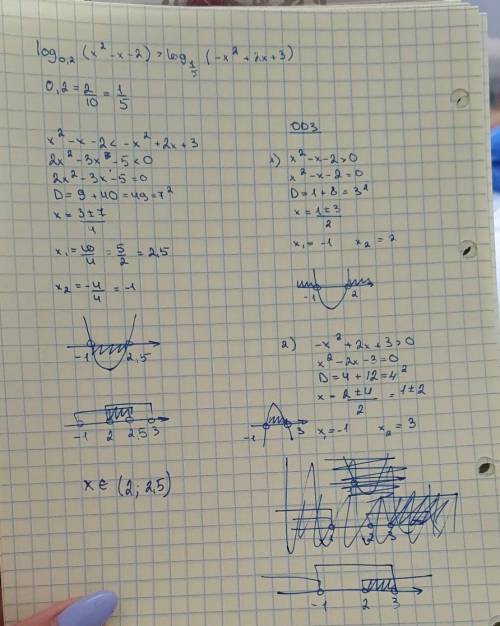 log₀,₂ (x² - x - 2) > log₁/₅ (-x² + 2x + 3)
0,2 = 2/10 = 1/5
x² - x - 2 < -x² + 2x + 3
2x² - 3x - 5 < 0
2x² - 3x - 5 = 0
D = 9 + 40 = 49 = 7²
x = (3 ± 7)/4
x₁ = 10/4 = 5/2 = 2,5
x₂ = -4/4 = -1
-1 2,5
-1 2 2,5 3
x ∈ (2; 2,5)
ОДЗ
1) x² - x - 2 > 0
x² - x - 2 = 0
D = 1 + 8 = 3²
x = (1 ± 3)/2
x₁ = -1 x₂ = 2
-1 2
2) -x² + 2x + 3 > 0
x² - 2x - 3 = 0
D = 4 + 12 = 4²
x = (2 ± 4)/2 = 1 ± 2
x₁ = -1 x₂ = 3
-1 3
-1 2 3